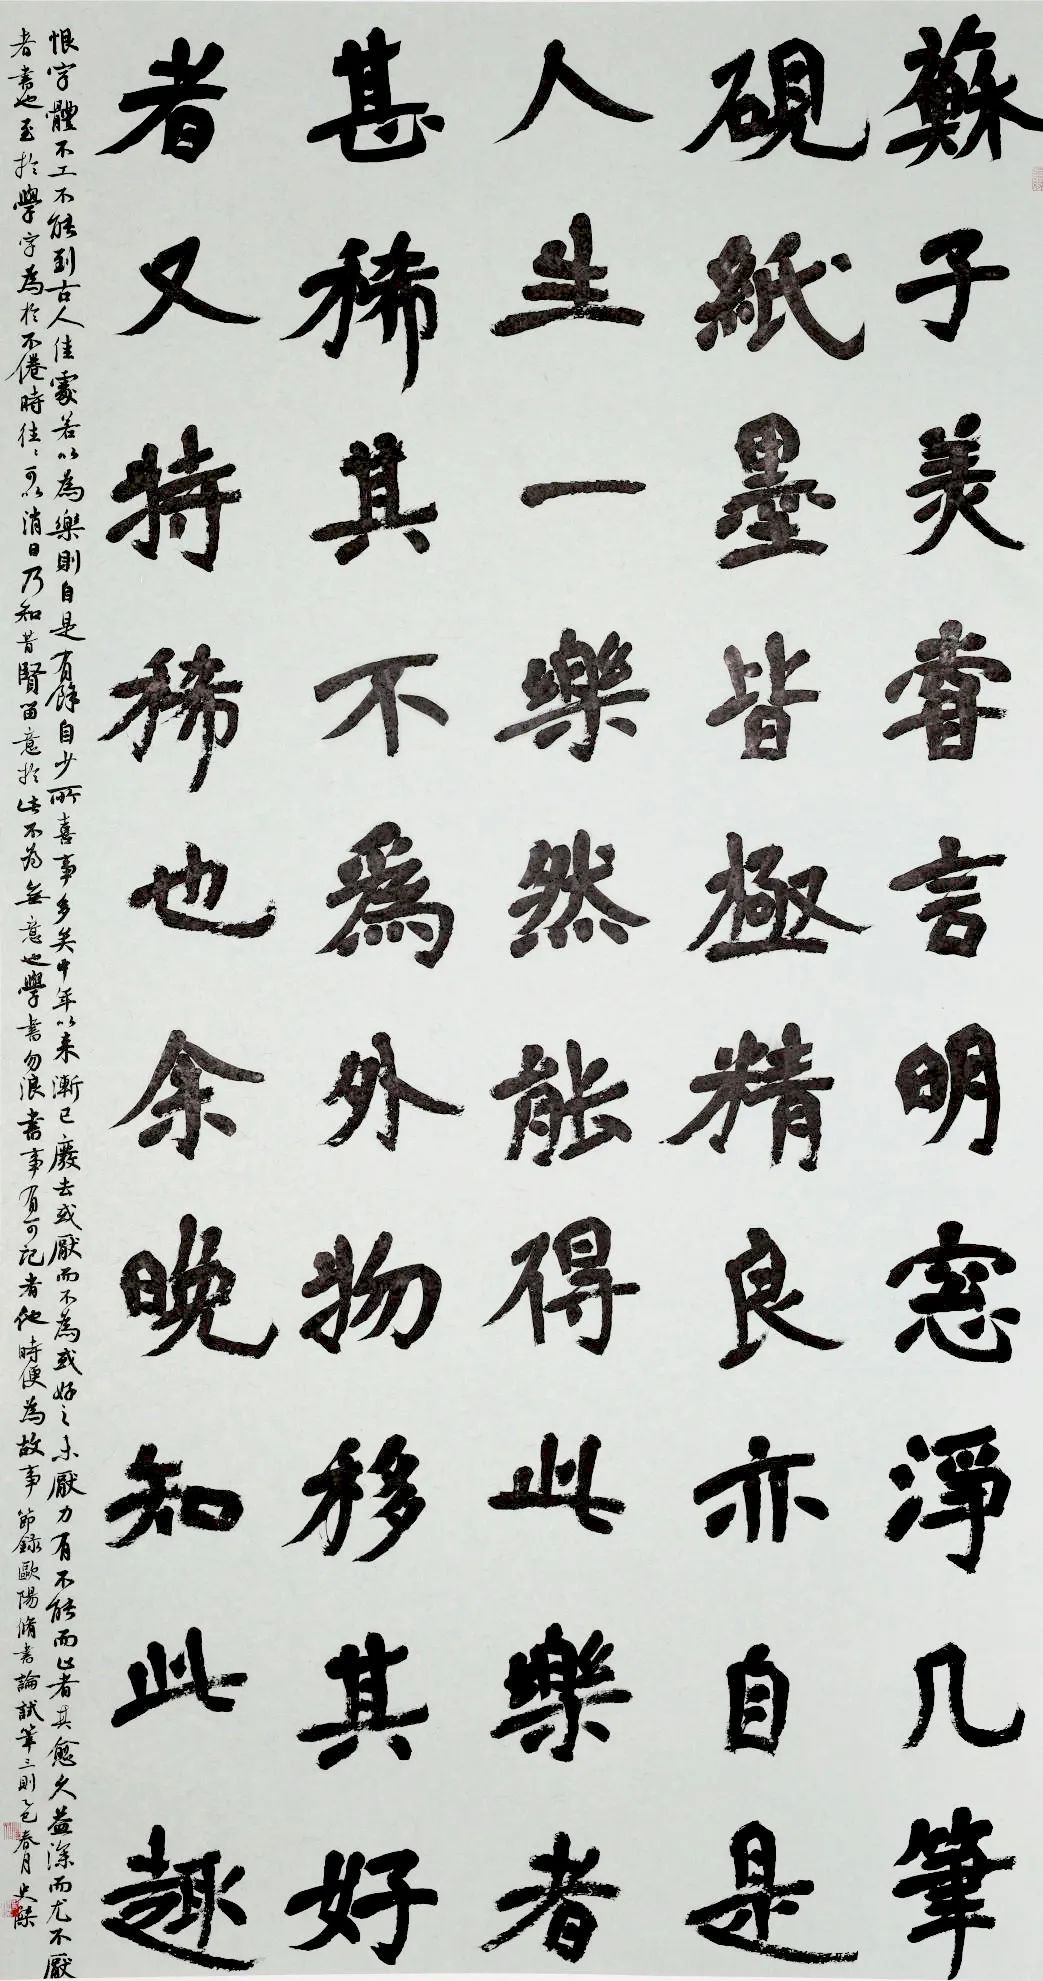 蘇子美嘗言明窓淨几筆
硯紙墨皆極精良亦自是
人生一樂然能得此樂者
甚稀其不為外物移其好
者又特稀也余晚知此趣
恨字體不工不能到古人佳處若以為樂則自是有餘自少所喜事多矣中年以来漸已廢去或厭而不為或好之未厭力有不能而止者其愈久益深而尤不厭
者書也至於學字為於不倦時往〻可以消日乃知昔賢留意於此不為無意也學書勿浪書事有可記者他時便為故事節録歐陽脩書論試筆三則乙巳春月史